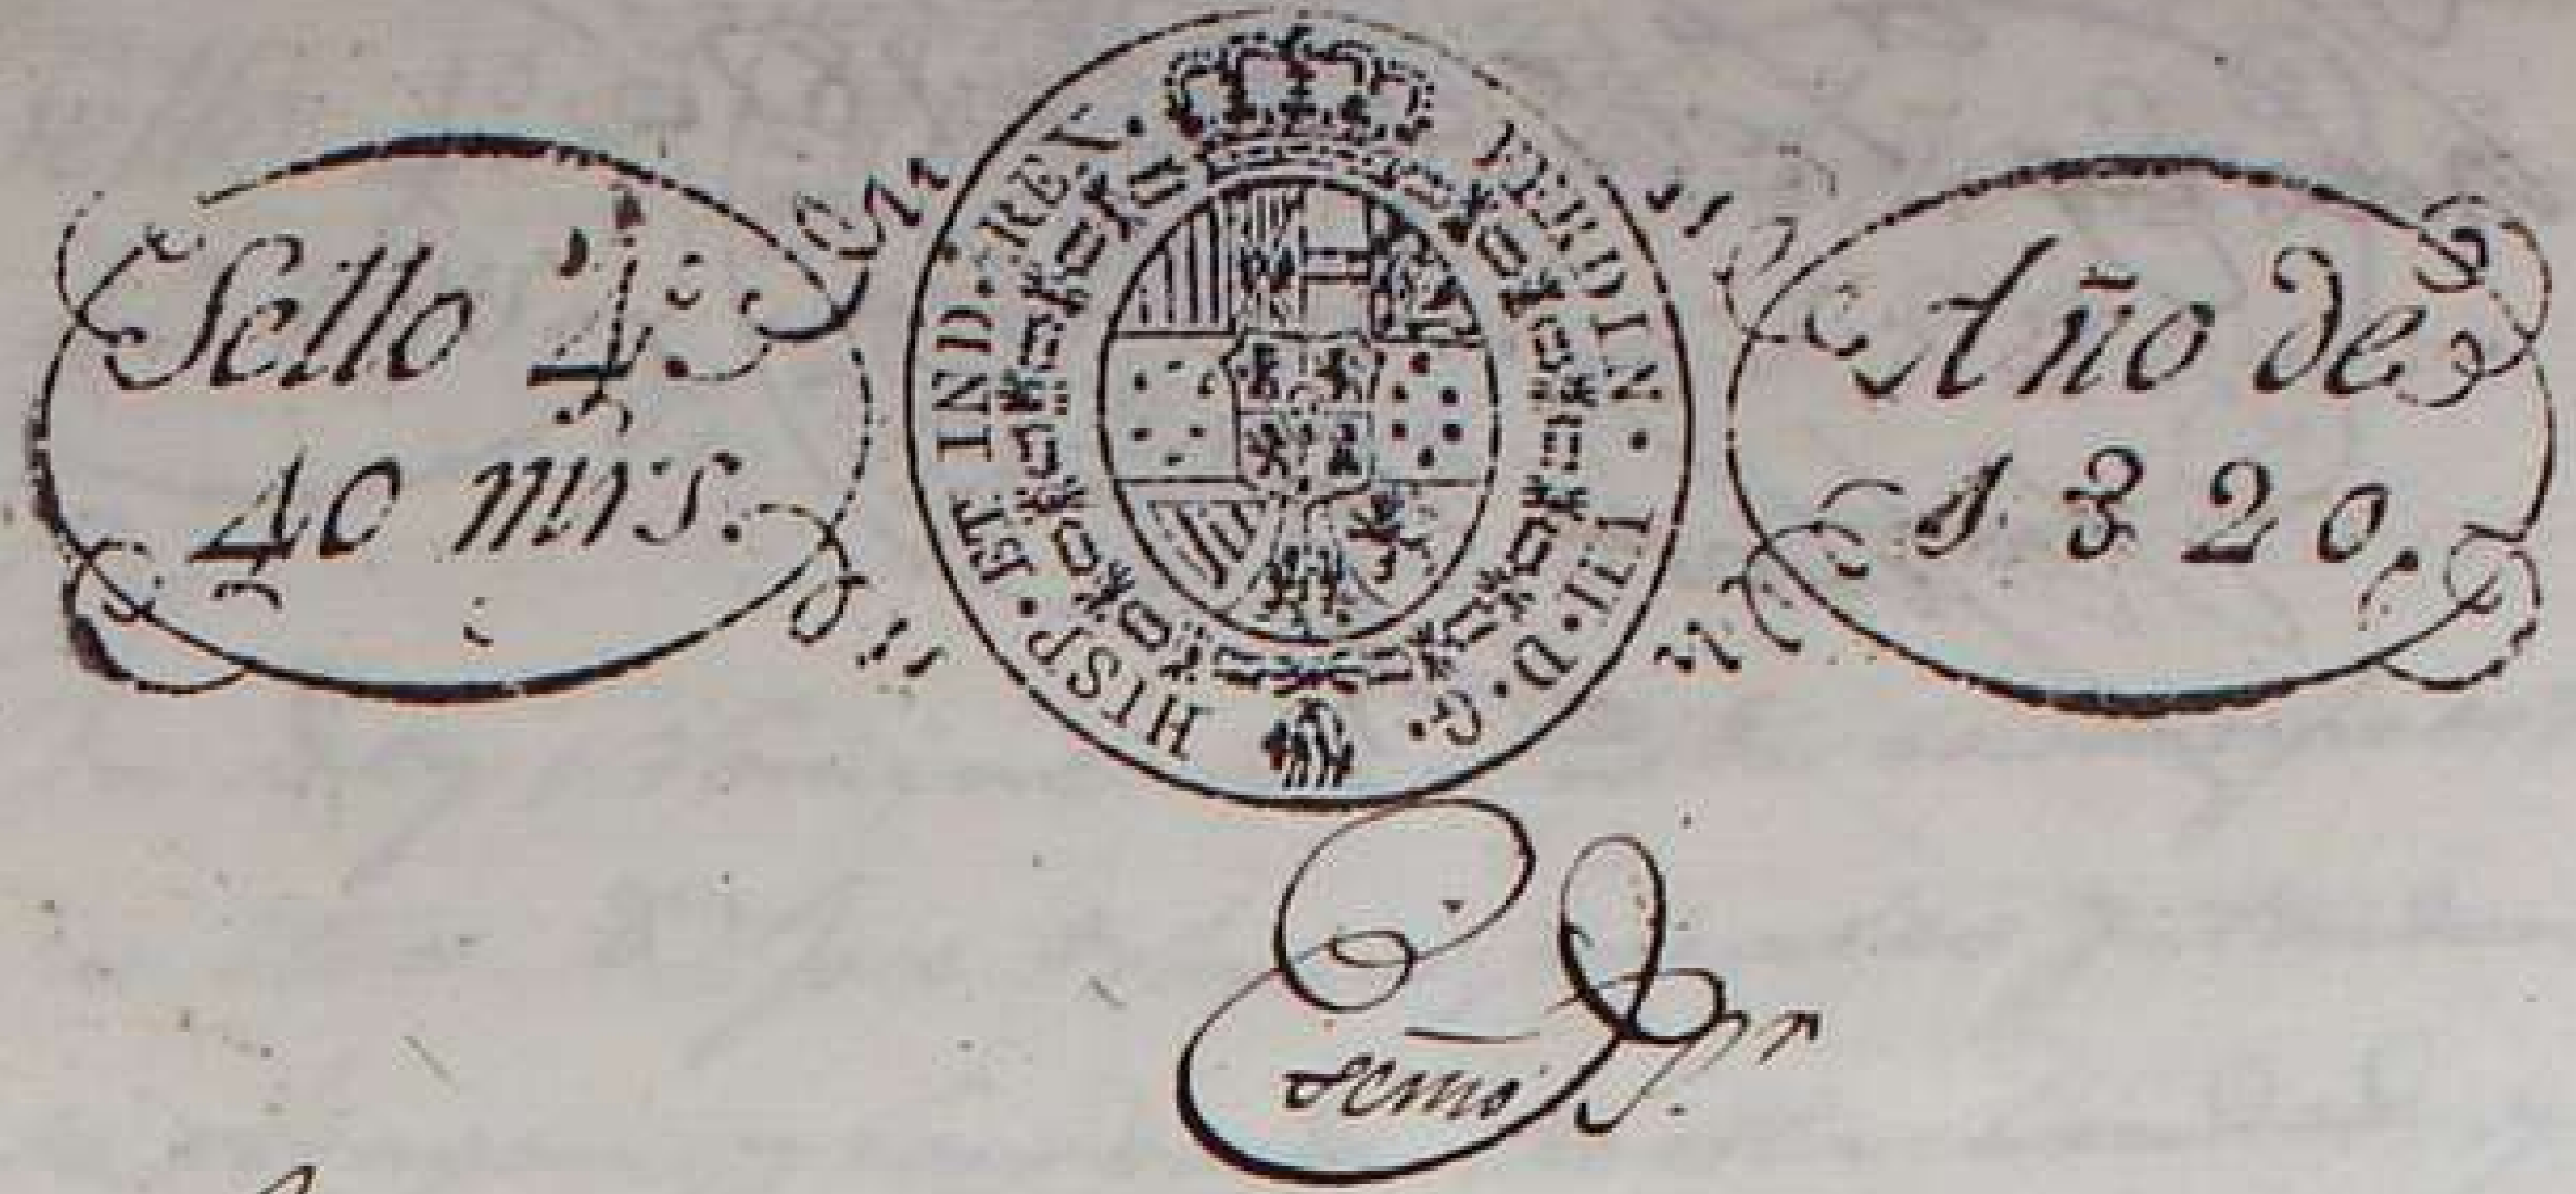 Sello 4.º
40 mrs.
FERDIN · VII · D · G · HISP · ET IND · REX ·
Año de
1820.
Exmo Sr.